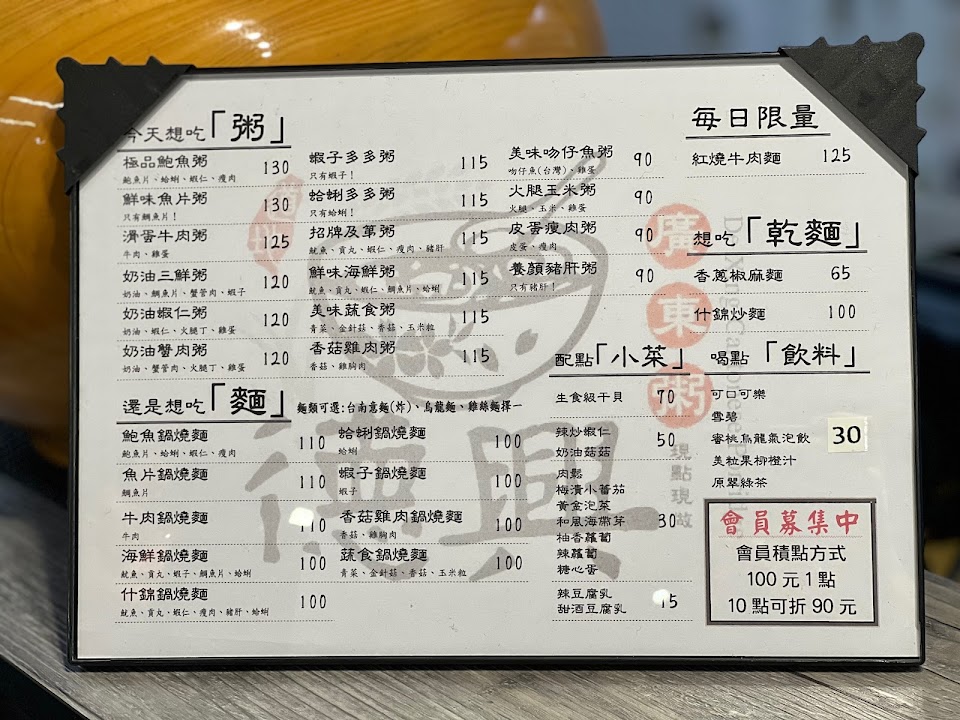 今天想吃「粥」
極品鮑魚粥 130
鮑魚片、蛤蜊、蝦仁、瘦肉
鮮味魚片粥 130
只有鯛魚片！
滑蛋牛肉粥 125
牛肉、雞蛋
奶油三鮮粥 120
奶油、鯛魚片、蟹管肉、蝦子
奶油蝦仁粥 120
奶油、蝦仁、火腿丁、雞蛋
奶油蟹肉粥 120
奶油、蟹管肉、火腿丁、雞蛋
蝦子多多粥 115
只有蝦子！
蛤蜊多多粥 115
只有蛤蜊！
招牌及第粥 115
魷魚、貢丸、蝦仁、瘦肉、豬肝
鮮味海鮮粥 115
魷魚、貢丸、蝦仁、鯛魚片、蛤蜊
美味蔬食粥 115
青菜、金針菇、香菇、玉米粒
香菇雞肉粥 115
香菇、雞胸肉
美味吻仔魚粥 90
吻仔魚(台灣)、雞蛋
火腿玉米粥 90
火腿、玉米、雞蛋
皮蛋瘦肉粥 90
皮蛋、瘦肉
養顏豬肝粥 90
只有豬肝！
每日限量
紅燒牛肉麵 125
想吃「乾麵」
香蔥椒麻麵 65
什錦炒麵 100
還是想吃「麵」
麵類可選:台南意麵(炸)、烏龍麵、雞絲麵擇一
鮑魚鍋燒麵 110
鮑魚片、蛤蜊、蝦仁、瘦肉
魚片鍋燒麵 110
鯛魚片
牛肉鍋燒麵 110
牛肉
海鮮鍋燒麵 100
魷魚、貢丸、蝦子、鯛魚片、蛤蜊
什錦鍋燒麵 100
魷魚、貢丸、蝦仁、瘦肉、豬肝、蛤蜊
蛤蜊鍋燒麵 100
蛤蜊
蝦子鍋燒麵 100
蝦子
香菇雞肉鍋燒麵 100
香菇、雞胸肉
蔬食鍋燒麵 100
青菜、金針菇、香菇、玉米粒
配點「小菜」
生食級干貝 70
辣炒蝦仁 50
奶油菇菇
肉鬆
梅漬小蕃茄
黃金泡菜
和風海帶芽 30
柚香蘿蔔
辣蘿蔔
糖心蛋
辣豆腐乳 15
甜酒豆腐乳
喝點「飲料」
可口可樂
雪碧
蜜桃烏龍氣泡飲 30
美粒果柳橙汁
原翠綠茶
會員募集中
會員積點方式
100元1點
10點可折90元
廣東粥
德興
現點現做